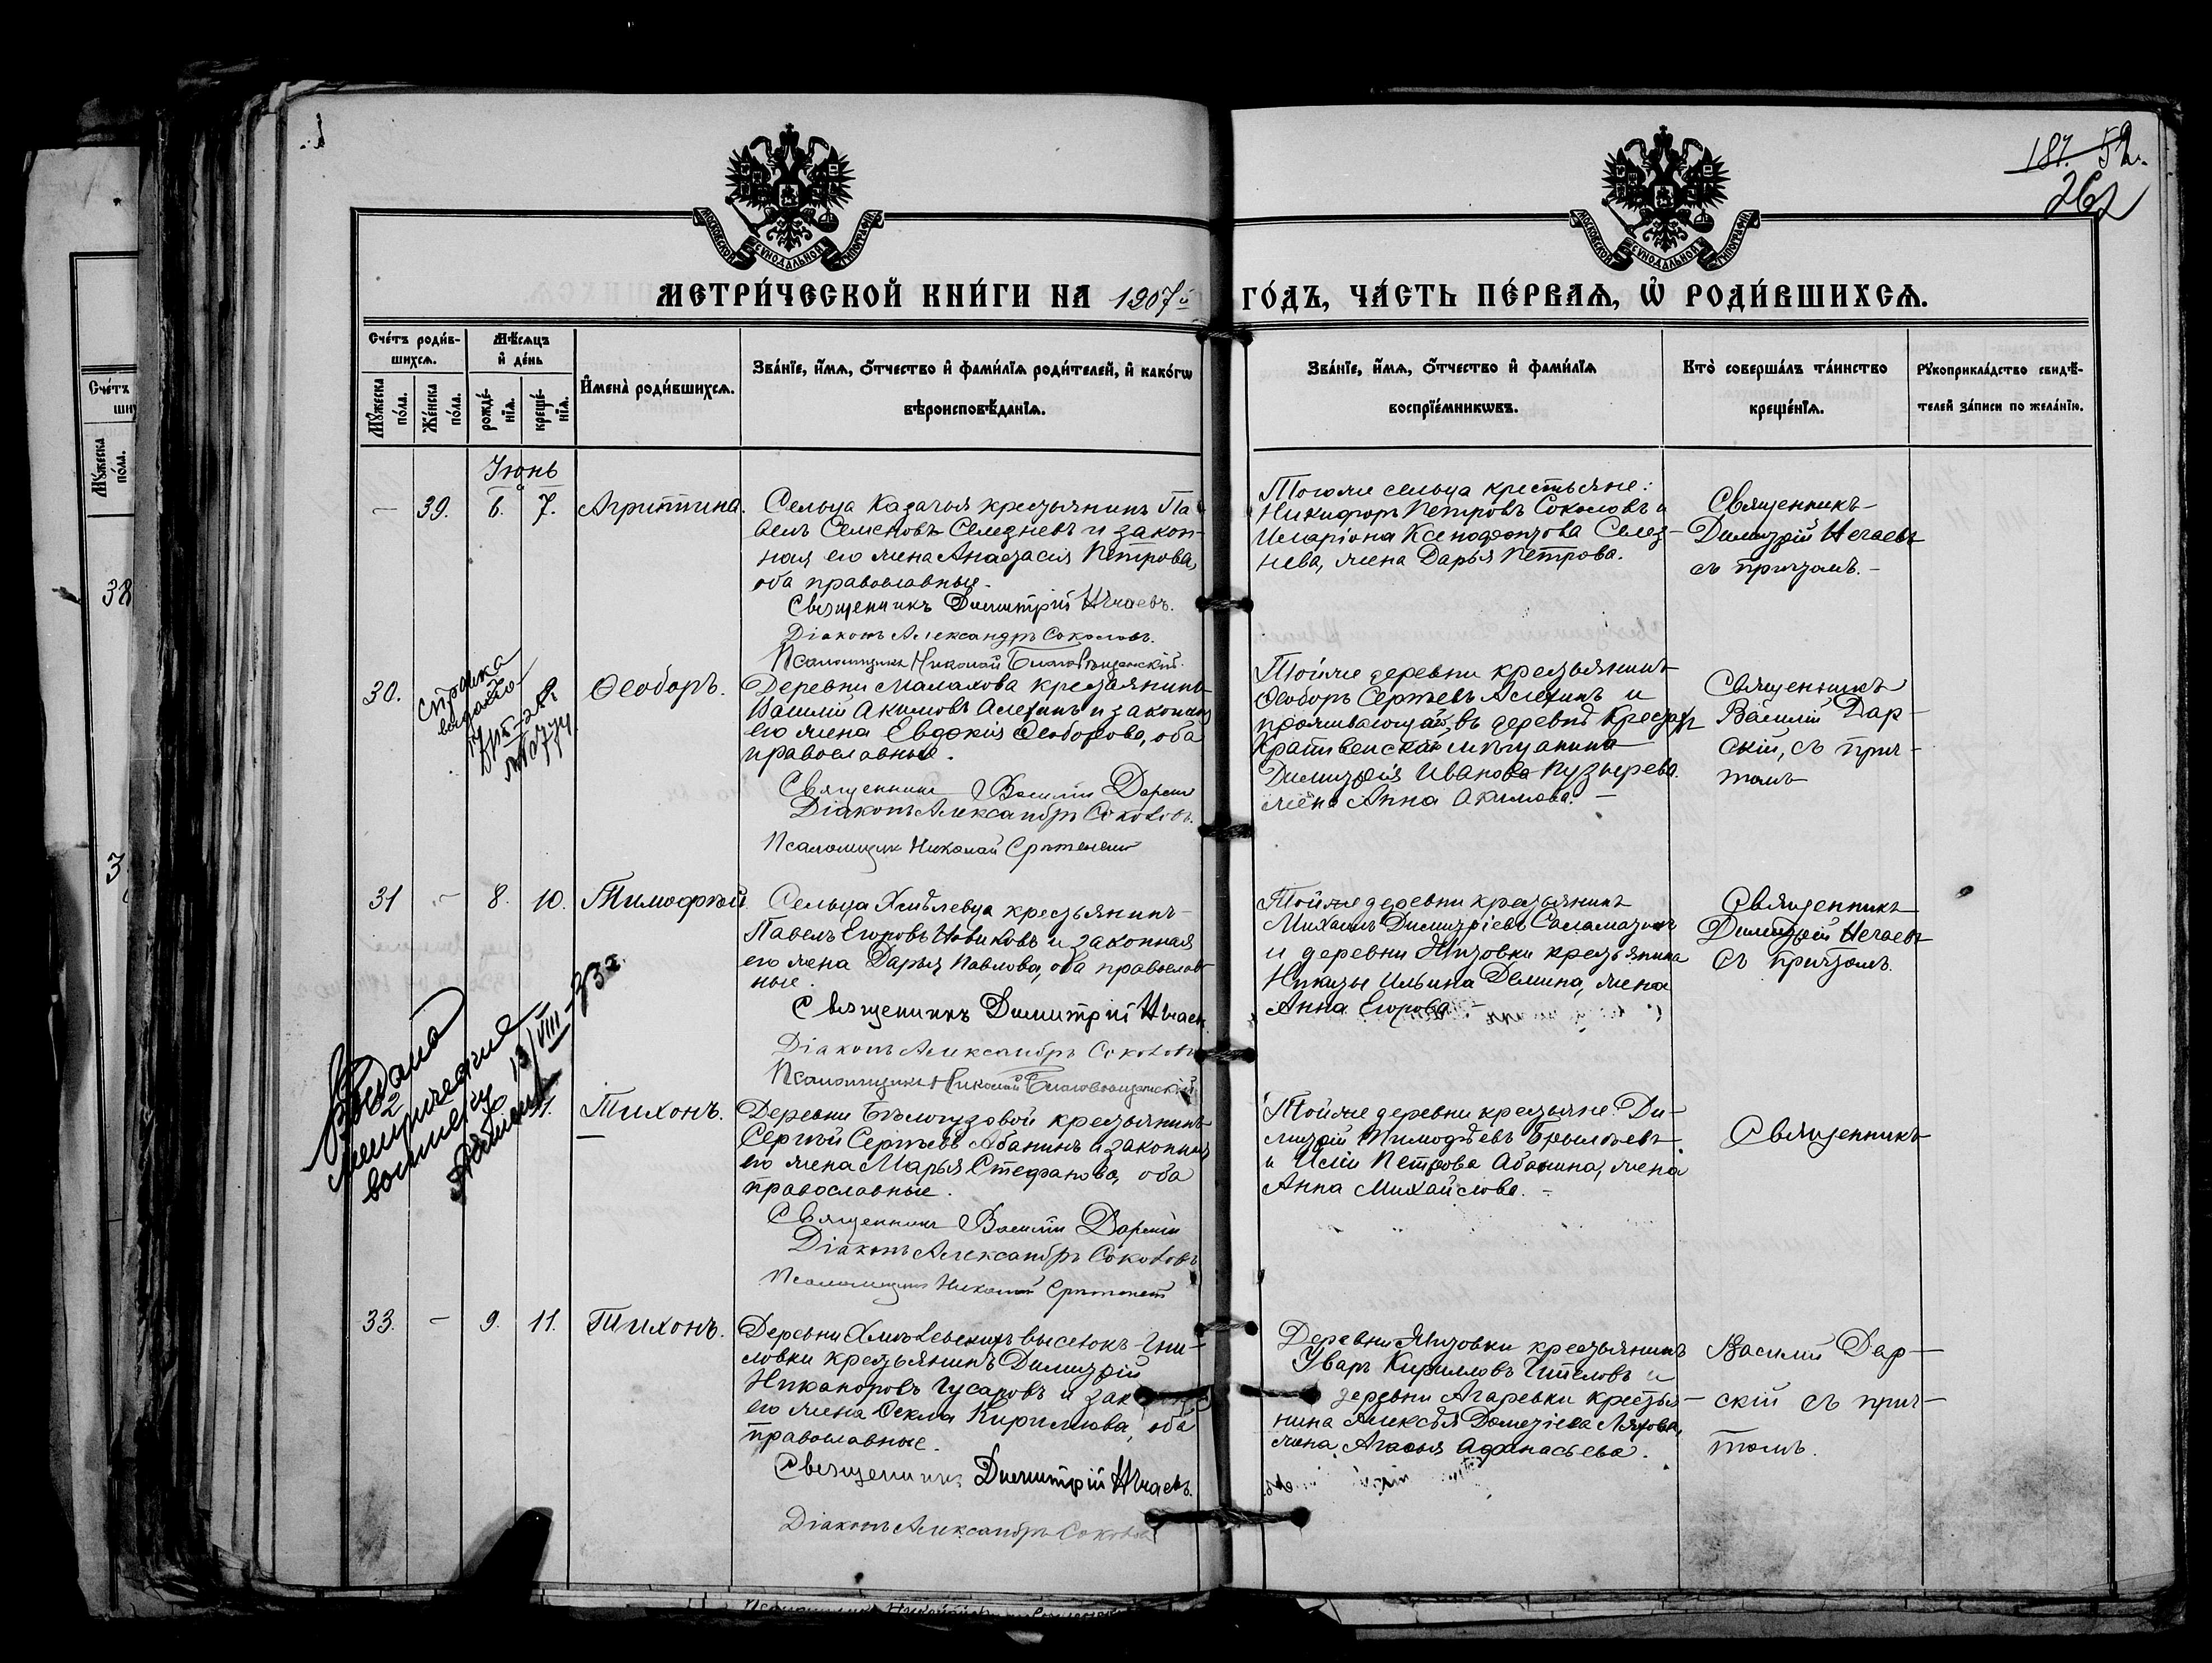 187. 52.
262
МОСКОВСКОЙ СѴНОДАЛЬНОЙ ТИПОГРАФІИ
МОСКОВСКОЙ СѴНОДАЛЬНОЙ ТИПОГРАФІИ
МЕТРИ́ЧЕСКОЙ КНИ́ГИ НА 1907й ГО́ДЪ, ЧА́СТЬ ПЕ́РВАѦ, Ѡ҆ РОДИ́ВШИХСѦ.
Счётъ роди́в-
шихсѧ.
Мꙋ́жеска
по́ла.
Же́нска
по́ла.
Мѣ́сѧцъ
и҆ де́нь
рожде́-
нїѧ.
креще́-
нїѧ.
И҆мена̀ роди́вшихсѧ.
Зва́нїе, и҆́мѧ, ѻ҆́тчество и҆ фами́лїѧ роди́телей, и҆ како́гѡ
вѣроисповѣ́данїѧ.
Зва́нїе, и҆́мѧ, ѻ҆́тчество и҆ фами́лїѧ
воспрїе́мникѡвъ.
Кто̀ соверша́лъ та́инство
креще́нїѧ.
Рꙋкоприкла́дство свидѣ́-
телей за́писи по жела́нїю.
Счётъ
Мꙋ́жеска
по́ла.
38
3
Іюнь
— 39. 6. 7. Агриппина.
Сельца Казачья крестьянинъ Па
велъ Семеновъ Селезневъ и закон-
ная его жена Анастасія Петрова,
оба православные.
Священникъ Димитрій Нечаевъ.
Діаконъ Александръ Соколовъ.
Псаломщикъ Николай Благовѣщенскій.
Тогоже сельца крестьяне:
Никифоръ Петровъ Соколовъ и
Иларіона Ксенофонтова Селез-
нева, жена Дарья Петрова.
Священникъ
Димитрій Нечаевъ
съ причтомъ.
30. Ѳеодоръ.
справка
выдана
Деревни Малахова крестьянинъ
Василій Акимовъ Алехинъ и законная
его жена Евдокія Ѳеодорова, оба
православные.
Священникъ Василій Дарскій
Діаконъ Александръ Соколовъ.
Псаломщикъ Николай Срѣтенскій
Тойже деревни крестьянинъ
Ѳеодоръ Сергѣевъ Алехинъ и
проживающая въ деревнѣ
мѣщанина
Димитрія Иванова Пузырева
жена Анна Акимова.
Священникъ
Василій Дар-
скій, съ прич-
томъ
31 — 8. 10. Тимофѣй
Сельца Хмѣлевца крестьянинъ
Павелъ Егоровъ Новиковъ и законная
его жена Дарья Павлова, оба православ-
ные.
Священникъ Димитрій Нечаевъ
Діаконъ Александръ Соколовъ
Псаломщикъ Николай Благовѣщенскій
Тойже деревни крестьянинъ
Михаилъ Димитріевъ Саламатинъ
и деревни Язовки крестьянина
Никиты Ильина Демина, жена
Анна Егорова
Священникъ
Димитрій Нечаевъ
съ причтомъ.
Выдана
метрическая
13/VIII-33г.
Тихонъ.
Деревни Бѣлогузовой крестьянинъ
Сергѣй Сергѣевъ Абанинъ и законная
его жена Марья Стефанова, оба
православные.
Священникъ Василій Дарскій
Діаконъ Александръ Соколовъ
Псаломщикъ Николай Срѣтенскій
Тойже деревни крестьяне: Ди-
митрій Тимофѣевъ
и Петрова Абанина, жена
Анна Михайлова.
Священникъ
33. — 9. 11. Тихонъ.
Деревни Хмѣлевскихъ выселокъ Гни-
ловки крестьянинъ Димитрій
Никаноровъ Гусаровъ и законная
его жена Ѳекла Кириллова, оба
православные.
Священникъ Димитрій Нечаевъ.
Діаконъ Александръ Соколовъ
Деревни Язовки крестьянинъ
Уваръ Кирилловъ и
деревни Агаревки крестья-
нина Алексѣя Дометіева
жена Агафья Афанасьева.
Василій Дар-
скій съ прич-
томъ.